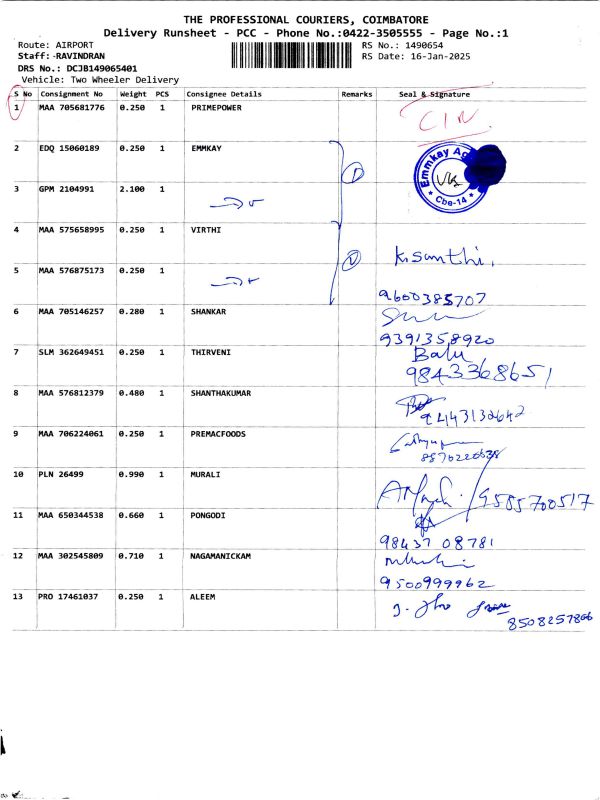 THE PROFESSIONAL COURIERS, COIMBATORE
Delivery Runsheet - PCC - Phone No.:0422-3505555 - Page No.:1
Route: AIRPORT RS No.: 1490654
Staff: -RAVINDRAN RS Date: 16-Jan-2025
DRS No.: DCJB149065401
Vehicle: Two Wheeler Delivery
S No Consignment No Weight PCS Consignee Details Remarks Seal & Signature
1 MAA 705681776 0.250 1 PRIMEPOWER
2 EDQ 15060189 0.250 1 EMMKAY Emmkay Cbe-14
3 GPM 2104991 2.100 1
4 MAA 575658995 0.250 1 VIRTHI K. Santhi,
5 MAA 576875173 0.250 1 9600385707
6 MAA 705146257 0.280 1 SHANKAR
9391358920
7 SLM 362649451 0.250 1 THIRVENI Balu
9843368651
8 MAA 576812379 0.480 1 SHANTHAKUMAR
9443132642
9 MAA 706224061 0.250 1 PREMACFOODS
10 PLN 26499 0.990 1 MURALI 9585700517
11 MAA 650344538 0.660 1 PONGODI
98437 08781
12 MAA 302545809 0.710 1 NAGAMANICKAM
9500999962
13 PRO 17461037 0.250 1 ALEEM
8508257866